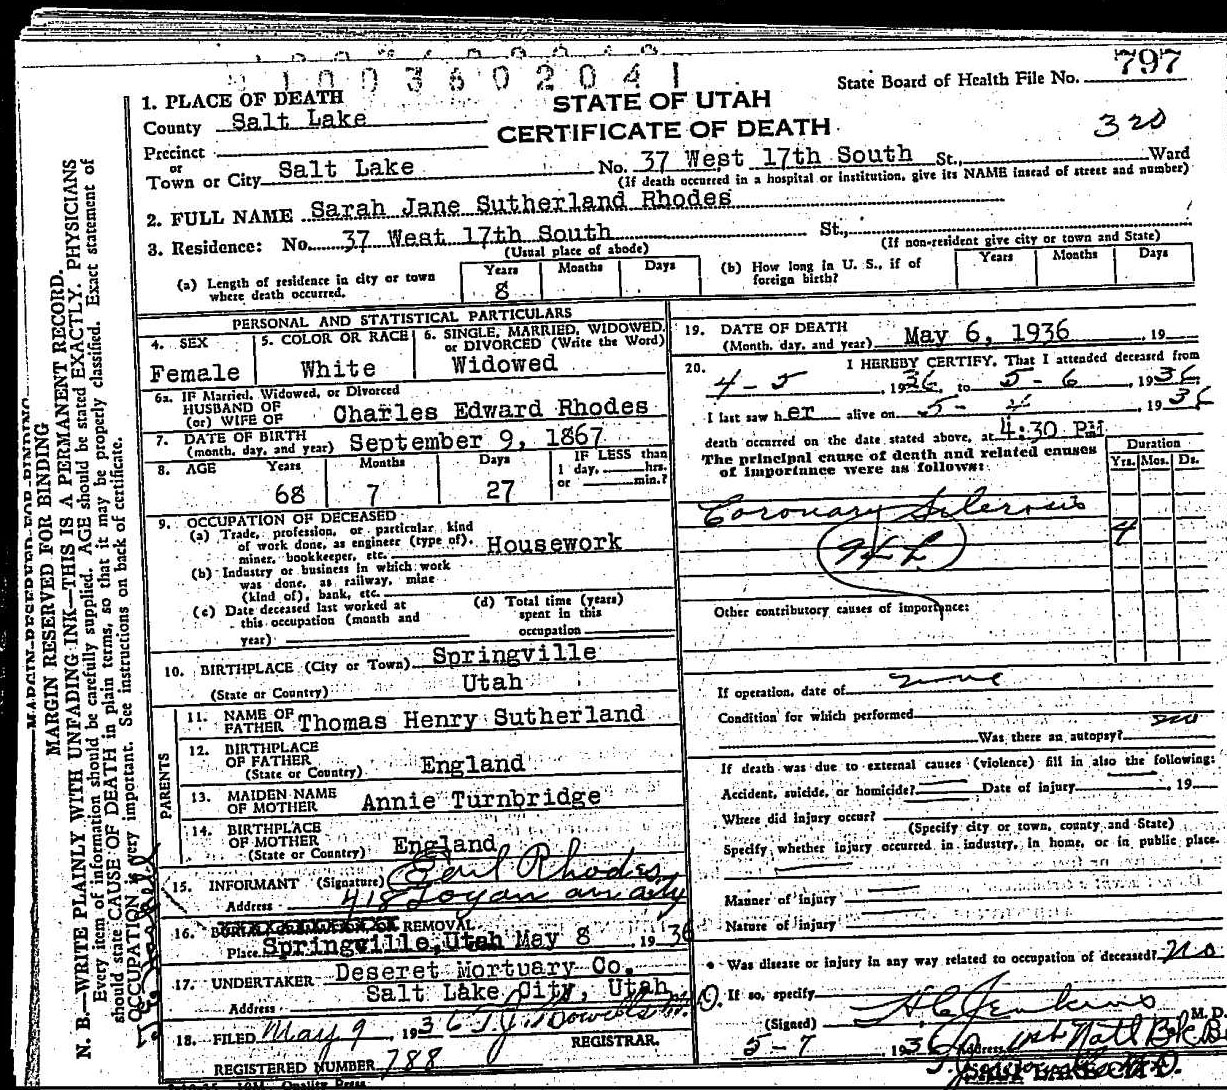 797
State Board of Health File No.
1003602041
STATE OF UTAH
CERTIFICATE OF DEATH
1. PLACE OF DEATH
County Salt Lake
Precinct
or
Town or City Salt Lake No. 37 West 17th South St., Ward
(If death occurred in a hospital or institution, give its NAME instead of street and number)
2. FULL NAME Sarah Jane Sutherland Rhodes
3. Residence: No. 37 West 17th South St.,
(Usual place of abode) (If non-resident give city or town and State)
(a) Length of residence in city or town where death occurred. Years 8 Months Days
(b) How long in U. S., if of foreign birth? Years Months Days
PERSONAL AND STATISTICAL PARTICULARS
4. SEX Female
5. COLOR OR RACE White
6. SINGLE, MARRIED, WIDOWED, or DIVORCED (Write the Word) Widowed
6a. IF Married, Widowed, or Divorced
HUSBAND OF
(or) WIFE OF Charles Edward Rhodes
7. DATE OF BIRTH
(month, day, and year) September 9, 1867
8. AGE Years 68 Months 7 Days 27 IF LESS than 1 day, hrs. or min.?
9. OCCUPATION OF DECEASED
(a) Trade, profession, or particular kind
of work done, as engineer (type of),
miner, bookkeeper, etc. Housework
(b) Industry or business in which work
was done, as railway, mine
(kind of), bank, etc.
(c) Date deceased last worked at
this occupation (month and
year)
(d) Total time (years)
spent in this
occupation
10. BIRTHPLACE (City or Town) Springville
(State or Country) Utah
PARENTS
11. NAME OF FATHER Thomas Henry Sutherland
12. BIRTHPLACE OF FATHER
(State or Country) England
13. MAIDEN NAME OF MOTHER Annie Turnbridge
14. BIRTHPLACE OF MOTHER
(State or Country) England
15. INFORMANT (Signature) Earl Rhodes
Address 418 Logan av city
16. REMOVAL
Place Springville, Utah May 8, 1936
17. UNDERTAKER Deseret Mortuary Co.
Address Salt Lake City, Utah
18. FILED May 9, 1936
REGISTRAR.
REGISTERED NUMBER 788
19. DATE OF DEATH
(Month, day, and year) May 6, 1936 , 19
20. I HEREBY CERTIFY, That I attended deceased from
4-5, 1936, to 5-6, 1936
I last saw her alive on 5-4 1936
death occurred on the date stated above, at 4:30 PM
The principal cause of death and related causes
of importance were as follows:
Duration
Yrs. Mos. Ds.
Coronary Sclerosis
4
Other contributory causes of importance:
If operation, date of none
Condition for which performed
Was there an autopsy? no
If death was due to external causes (violence) fill in also the following:
Accident, suicide, or homicide? Date of injury , 19
Where did injury occur?
(Specify city or town, county and State)
Specify whether injury occurred in industry, in home, or in public place.
Manner of injury
Nature of injury
Was disease or injury in any way related to occupation of deceased? No
If so, specify
(Signed) H C Jenkins M. D.
5-7, 1936 Address 1st Natl Bk
MARGIN RESERVED FOR BINDING
MARGIN RESERVED FOR BINDING
N. B.—WRITE PLAINLY WITH UNFADING INK—THIS IS A PERMANENT RECORD.
Every item of information should be carefully supplied. AGE should be stated EXACTLY. PHYSICIANS
should state CAUSE OF DEATH in plain terms, so that it may be properly classified. Exact statement of
OCCUPATION is very important. See instructions on back of certificate.